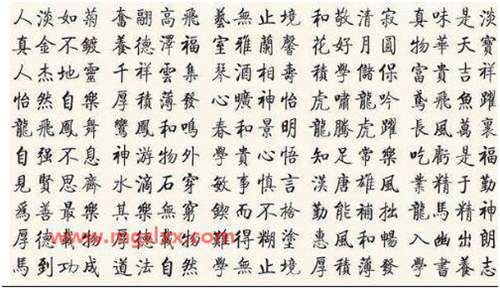 人淡如菊 奮翮高飛 藝無止境 和敬清寂 真味是淡
真金不鍍 養德澤福 室雅蘭馨 花好月圓 物華天寶
人杰地靈 千祥雲集 琴酒相壽 積學儲保 富貴吉祥
怡然自樂 厚積薄發 心曠神怡 虎嘯龍吟 鳶飛魚躍
龍飛鳳舞 鸞鳳和鳴 春和景明 龍騰虎躍 長風萬裏
自强不息 神游物外 學貴心悟 知足常樂 吃虧是福
見賢思齊 水滴石穿 敏事慎言 漢唐雄風 業精于勤
爲善最樂 其樂無窮 鍥而不捨 勤能補拙 龍馬精神
厚德載物 萬物 難得糊塗 惠風和暢 入幽出朗
馬到功成 道法自然 學無止境 厚積薄發 學書養志